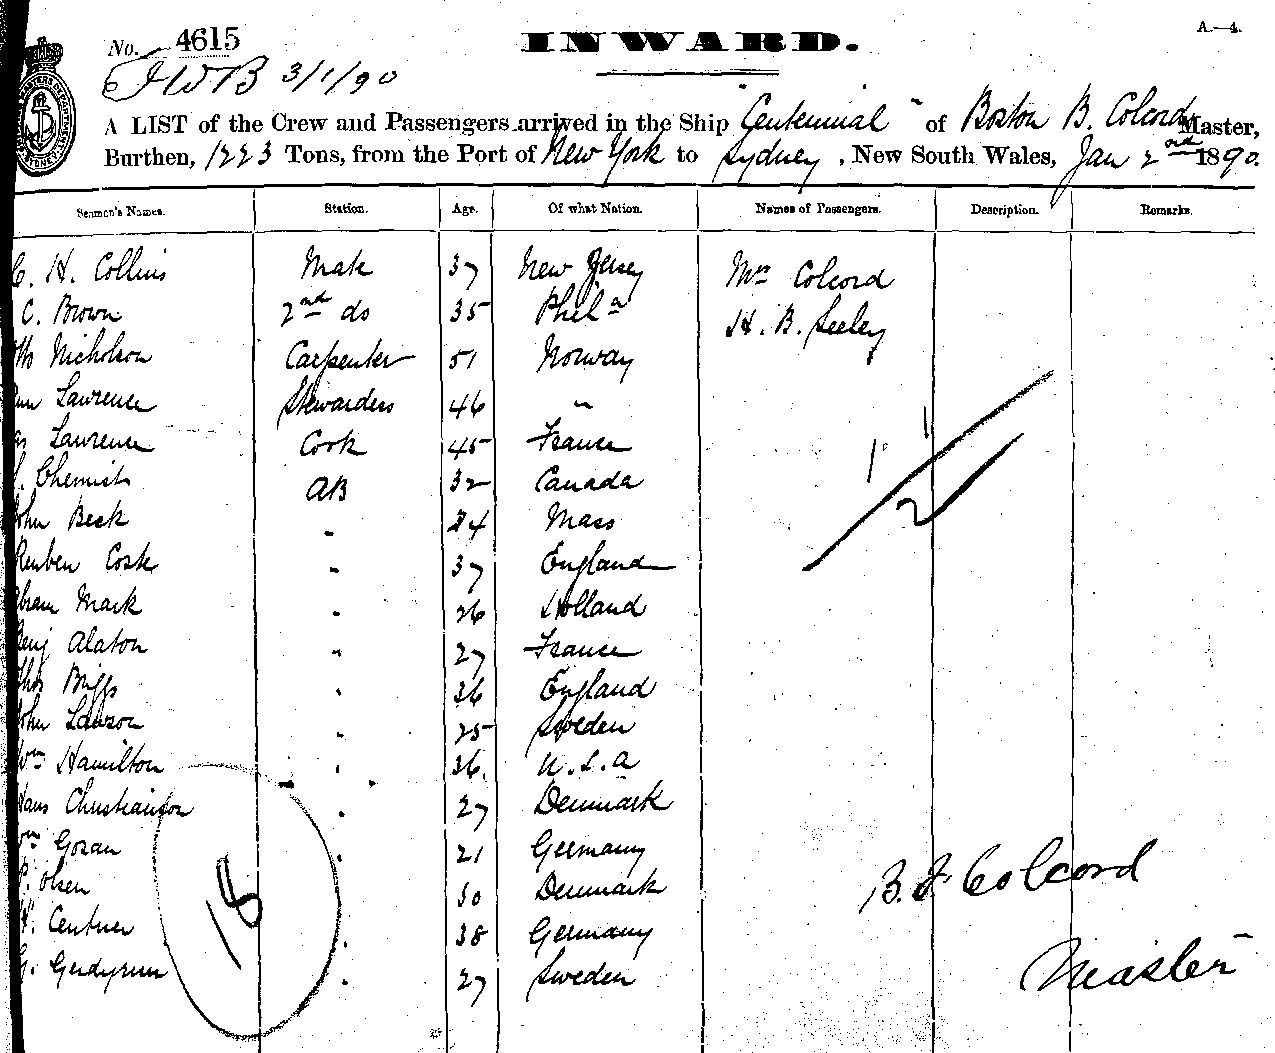 No. 4615 INWARD. A.—4.
3/1/90
A LIST of the Crew and Passengers arrived in the Ship "Centennial" of Boston B. Colcord Master,
Burthen, 1223 Tons, from the Port of New York to Sydney, New South Wales, Jan 2nd 1890.
Seamen's Names. Station. Age. Of what Nation. Names of Passengers. Description. Remarks.
C. H. Collins Mate 37 New Jersey Mrs Colcord
C. Brown 2nd do 35 Phila H. B. Seeley
Nicholson Carpenter 51 Norway
Lawrence Stewardess 46 "
Lawrence Cook 45 France
Chemist AB 32 Canada
John Beck " 24 Mass
Reuben Cook " 37 England
Abram Mark " 26 Holland
Benj Alaton " 27 France
Thos Briggs " 36 England
John Lawson " 25 Sweden
Wm Hamilton " 36. U.S.A
Hans Christianson " 27 Denmark
Wm Goran " 21 Germany
P. Olsen 30 Denmark
H. Centner " 38 Germany
G. " 27 Sweden
18
2
B. F. Colcord
Master